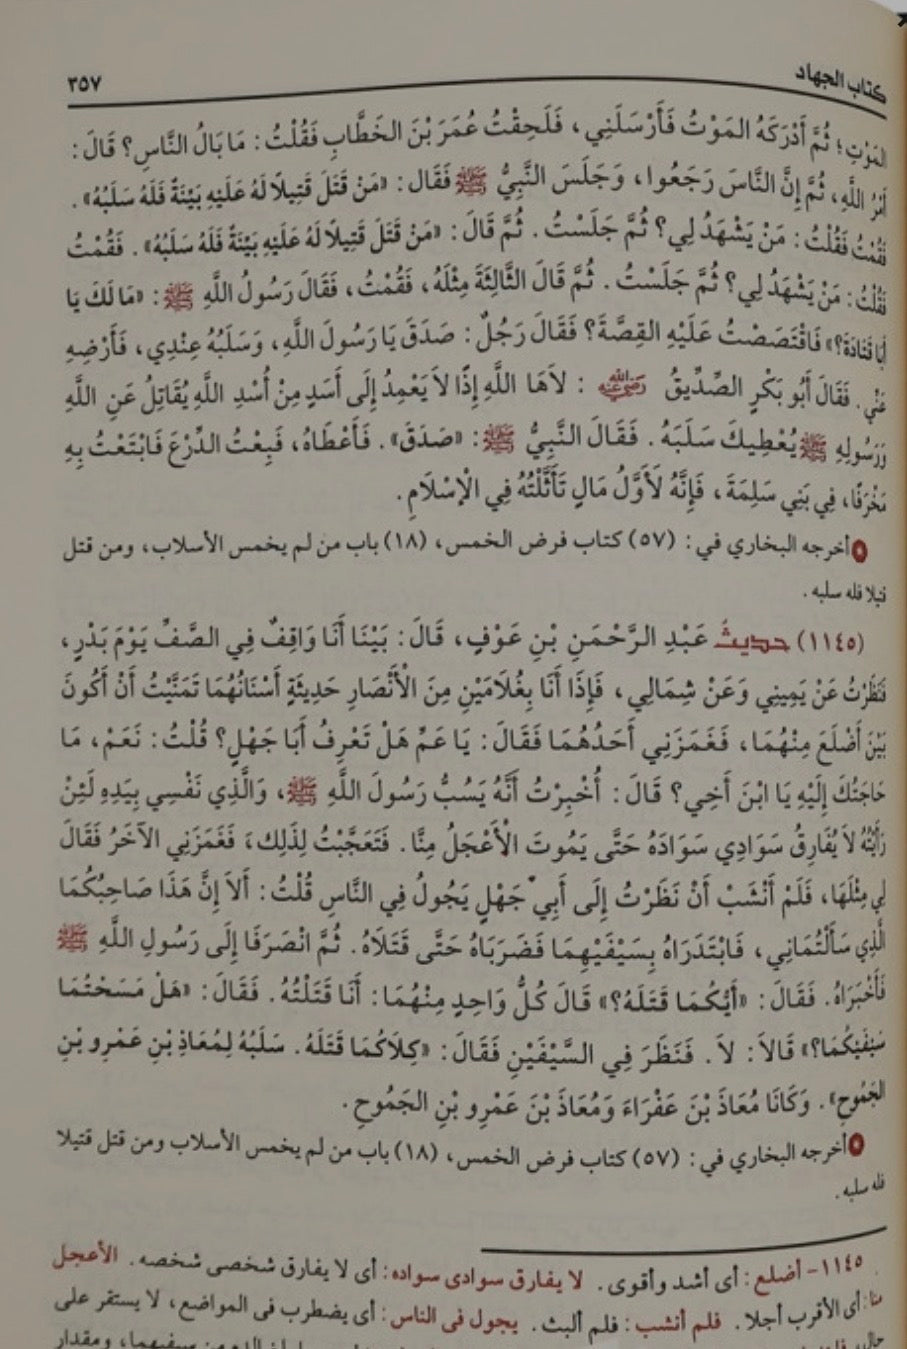 كتاب الجهاد
٣٥٧
المَوْتِ؛ ثُمَّ أَدْرَكَهُ المَوْتُ فَأَرْسَلَنِي، فَلَحِقْتُ عُمَرَ بْنَ الخَطَّابِ فَقُلْتُ: مَا بَالُ النَّاسِ؟ قَالَ:
أَمْرُ اللَّهِ، ثُمَّ إِنَّ النَّاسَ رَجَعُوا، وَجَلَسَ النَّبِيُّ ﷺ فَقَالَ: «مَنْ قَتَلَ قَتِيلًا لَهُ عَلَيْهِ بَيِّنَةٌ فَلَهُ سَلَبُهُ».
فَقُمْتُ فَقُلْتُ: مَنْ يَشْهَدُ لِي؟ ثُمَّ جَلَسْتُ. ثُمَّ قَالَ: «مَنْ قَتَلَ قَتِيلًا لَهُ عَلَيْهِ بَيِّنَةٌ فَلَهُ سَلَبُهُ». فَقُمْتُ
فَقُلْتُ: مَنْ يَشْهَدُ لِي؟ ثُمَّ جَلَسْتُ. ثُمَّ قَالَ الثَّالِثَةَ مِثْلَهُ، فَقُمْتُ، فَقَالَ رَسُولُ اللَّهِ ﷺ: «مَا لَكَ يَا
أَبَا قَتَادَةَ؟» فَاقْتَصَصْتُ عَلَيْهِ القِصَّةَ؟ فَقَالَ رَجُلٌ: صَدَقَ يَا رَسُولَ اللَّهِ، وَسَلَبُهُ عِنْدِي، فَأَرْضِهِ
عَنِّي. فَقَالَ أَبُو بَكْرٍ الصِّدِّيقُ رضي الله عنه: لَاهَا اللَّهِ إِذًا لاَ يَعْمِدُ إِلَى أَسَدٍ مِنْ أُسْدِ اللَّهِ يُقَاتِلُ عَنِ اللَّهِ
وَرَسُولِهِ ﷺ يُعْطِيكَ سَلَبَهُ. فَقَالَ النَّبِيُّ ﷺ: «صَدَقَ». فَأَعْطَاهُ، فَبِعْتُ الدِّرْعَ فَابْتَعْتُ بِهِ
مَخْرَفًا، فِي بَنِي سَلِمَةَ، فَإِنَّهُ لَأَوَّلُ مَالٍ تَأَثَّلْتُهُ فِي الْإِسْلَامِ.
أخرجه البخاري في: (٥٧) كتاب فرض الخمس، (١٨) باب من لم يخمس الأسلاب، ومن قتل
قتيلا فله سلبه.
(١١٤٥) حديثُ عَبْدِ الرَّحْمَنِ بْنِ عَوْفٍ، قَالَ: بَيْنَا أَنَا وَاقِفٌ فِي الصَّفِّ يَوْمَ بَدْرٍ،
فَنَظَرْتُ عَنْ يَمِينِي وَعَنْ شِمَالِي، فَإِذَا أَنَا بِغُلَامَيْنِ مِنَ الْأَنْصَارِ حَدِيثَةٍ أَسْنَانُهُمَا تَمَنَّيْتُ أَنْ أَكُونَ
بَيْنَ أَضْلَعَ مِنْهُمَا، فَغَمَزَنِي أَحَدُهُمَا فَقَالَ: يَا عَمِّ هَلْ تَعْرِفُ أَبَا جَهْلٍ؟ قُلْتُ: نَعَمْ، مَا
حَاجَتُكَ إِلَيْهِ يَا ابْنَ أَخِي؟ قَالَ: أُخْبِرْتُ أَنَّهُ يَسُبُّ رَسُولَ اللَّهِ ﷺ، وَالَّذِي نَفْسِي بِيَدِهِ لَئِنْ
رَأَيْتُهُ لاَ يُفَارِقُ سَوَادِي سَوَادَهُ حَتَّى يَمُوتَ الْأَعْجَلُ مِنَّا. فَتَعَجَّبْتُ لِذَلِكَ، فَغَمَزَنِي الآخَرُ فَقَالَ
لِي مِثْلَهَا، فَلَمْ أَنْشَبْ أَنْ نَظَرْتُ إِلَى أَبِي جَهْلٍ يَجُولُ فِي النَّاسِ قُلْتُ: أَلاَ إِنَّ هَذَا صَاحِبُكُمَا
الَّذِي سَأَلْتُمَانِي، فَابْتَدَرَاهُ بِسَيْفَيْهِمَا فَضَرَبَاهُ حَتَّى قَتَلَاهُ. ثُمَّ انْصَرَفَا إِلَى رَسُولِ اللَّهِ ﷺ
فَأَخْبَرَاهُ. فَقَالَ: «أَيُّكُمَا قَتَلَهُ؟» قَالَ كُلُّ وَاحِدٍ مِنْهُمَا: أَنَا قَتَلْتُهُ. فَقَالَ: «هَلْ مَسَحْتُمَا
سَيْفَيْكُمَا؟» قَالاَ: لاَ. فَنَظَرَ فِي السَّيْفَيْنِ فَقَالَ: «كِلَاكُمَا قَتَلَهُ. سَلَبُهُ لِمُعَاذِ بْنِ عَمْرِو بْنِ
الجَمُوحِ». وَكَانَا مُعَاذَ بْنَ عَفْرَاءَ وَمُعَاذَ بْنَ عَمْرِو بْنِ الجَمُوحِ.
أخرجه البخاري في: (٥٧) كتاب فرض الخمس، (١٨) باب من لم يخمس الأسلاب ومن قتل قتيلا
فله سلبه.
١١٤٥- أضلع: أى أشد وأقوى. لا يفارق سوادى سواده: أى لا يفارق شخصى شخصه. الأعجل
منا: أى الأقرب أجلا. فلم أنشب: فلم ألبث. يجول فى الناس: أى يضطرب فى المواضع، لا يستقر على
ومقدار